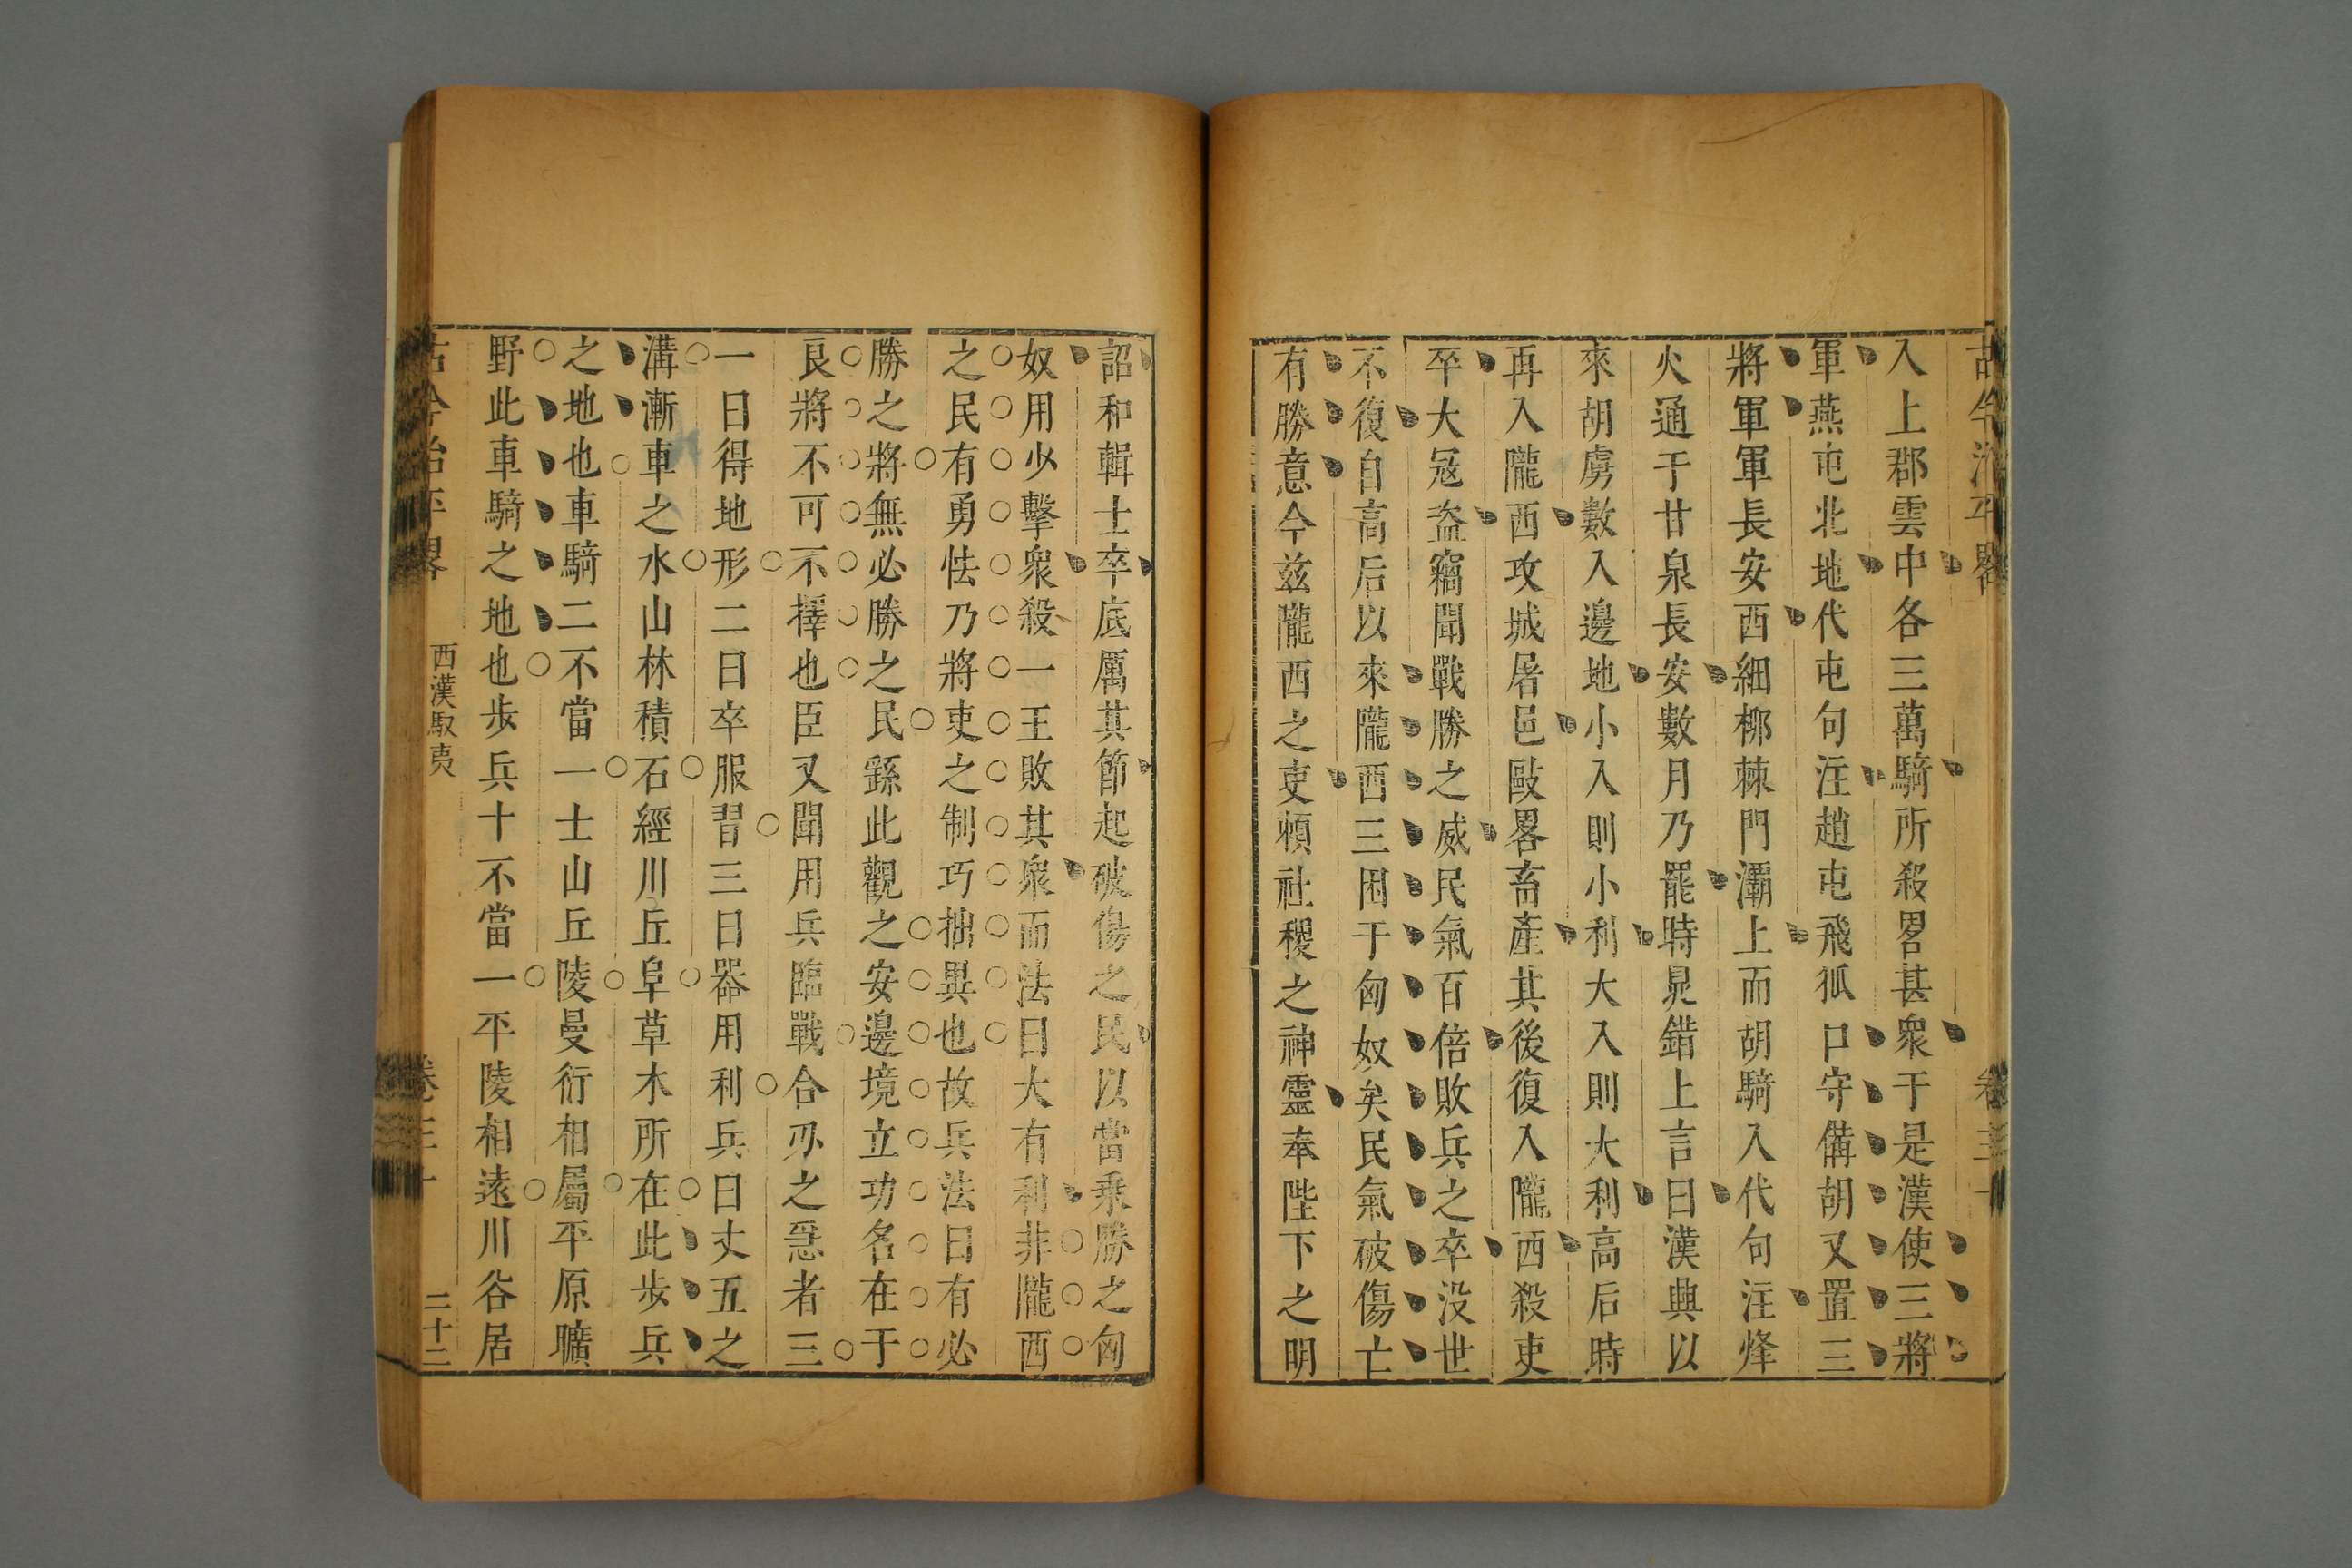 入上郡雲中各三萬騎所殺畧甚衆于是漢使三將
軍燕屯北地代屯句注趙屯飛狐口守備胡又置三
將軍軍長安西細柳棘門灞上而胡騎入代句注烽
火通于甘泉長安數月乃罷時晁錯上言曰漢興以
來胡虜數入邊地小入則小利大入則大利高后時
再入隴西攻城屠邑敺畧畜產其後復入隴西殺吏
卒大冦盗竊聞戰勝之威民氣百倍敗兵之卒没世
不復自高后以來隴西三困于匈奴矣民氣破傷亡
有勝意今兹隴西之吏頼社稷之神靈奉陛下之明
詔和輯士卒底厲其節起破傷之民以當乗勝之匈
奴用少擊衆殺一王敗其衆而法曰大有利非隴西
之民有勇怯乃將吏之制巧拙異也故兵法曰有必
勝之將無必勝之民繇此觀之安邊境立功名在于
良將不可不擇也臣又聞用兵臨戰合刃之急者三
一曰得地形二曰卒服習三曰器用利兵曰丈五之
溝漸車之水山林積石經川丘阜草木所在此步兵
之地也車騎二不當一士山丘陵曼衍相屬平原曠
野此車騎之地也步兵十不當一平陵相遠川谷居
古今治平畧
西漢馭夷
二十二